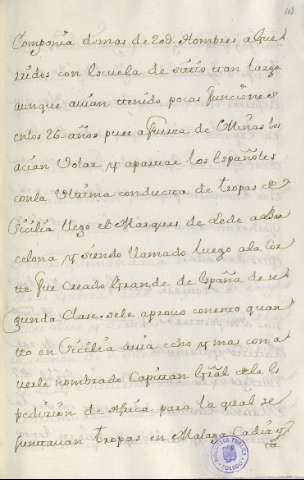 Componia de mas de 20d. Hombres aGue
rridos con Escuela de sitio tan larga
aunque auian tenido pocas funciones
en los 26. años pues a fuerza de Minas los
acian Volar y apartar los Españoles
con la Vltima conducta de tropas de
Cicilia llego el Marques de Lede a Bar
celona y siendo llamado luego a la Cor
te fue creado Grande de España de se
gunda Clase. se le aprouo con esto quan
tto en Cicilia auia echo y mas con a
uerle nombrado Capittan Gral de la Es
pedicion de Africa para la qual se
juntauan tropas en Malaga Cadiz y
BIBLIOTECA PUBLICA
TOLEDO